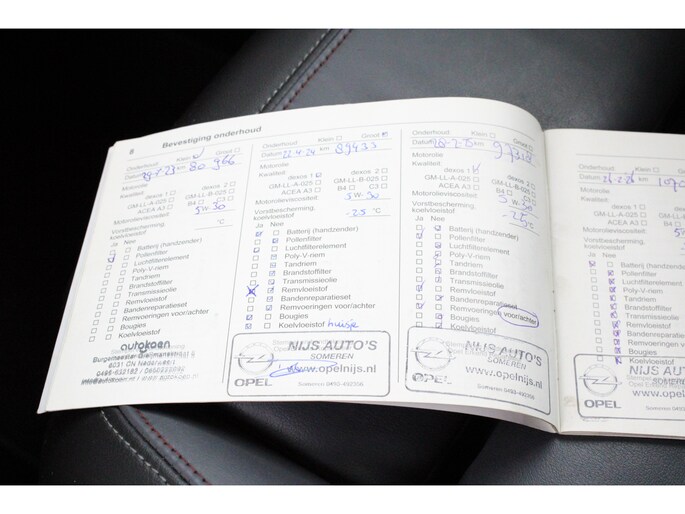 8 Bevestiging onderhoud
Onderhoud Klein
Datum km 80 966
Motorolie
Kwaliteit: dexos 1 dexos 2
GM-LL-A-025 GM-LL-B-025
ACEA A3 B4 C3
Motorolieviscositeit 5W-30
Vorstbescherming, koelvloeistof °C
Ja Nee
Batterij (handzender)
Pollenfilter
Luchtfilterelement
Poly-V-riem
Tandriem
Brandstoffilter
Transmissieolie
Remvloeistof
Bandenreparatieset
Remvoeringen voor/achter
Bougies
Koelvloeistof
autokoen
Onderhoud Klein Groot
Datum 22-4-24 km 89433
Motorolie
Kwaliteit: dexos 1 dexos 2
GM-LL-A-025 GM-LL-B-025
ACEA A3 B4 C3
Motorolieviscositeit 5W-30
Vorstbescherming,
koelvloeistof -25 °C
Ja Nee
Batterij (handzender)
Pollenfilter
Luchtfilterelement
Poly-V-riem
Tandriem
Brandstoffilter
Transmissieolie
Remvloeistof
Bandenreparatieset
Remvoeringen voor/achter
Bougies
Koelvloeistof huisje
NIJS AUTO'S
SOMEREN
www.opelnijs.nl
OPEL Someren 0493-492356
Onderhoud Klein Groot
Datum km
Motorolie
Kwaliteit: dexos 1 dexos 2
GM-LL-A-025 GM-LL-B-025
ACEA A3 B4 C3
Motorolieviscositeit
Vorstbescherming,
koelvloeistof -25 °C
Ja Nee
Batterij (handzender)
Pollenfilter
Luchtfilterelement
Poly-V-riem
Tandriem
Brandstoffilter
Transmissieolie
Remvloeistof
Bandenreparatieset
Remvoeringen voor/achter
Bougies
Koelvloeistof
NIJS AUTO'S
SOMEREN
www.opelnijs.nl
OPEL Someren 0493-492356
Onderhoud
Datum
Motorolie
Kwaliteit: dexos 1
GM-LL-A-025
ACEA A3
Motorolieviscositeit
Vorstbescherming,
koelvloeistof
Ja Nee
Batterij (handzender)
Pollenfilter
Luchtfilterelement
Poly-V-riem
Tandriem
Brandstoffilter
Transmissieolie
Remvloeistof
Bandenreparatieset
Remvoeringen voor/achter
Bougies
Koelvloeistof
NIJS AU
SOMEREN
www.opel
OPEL Someren 0493